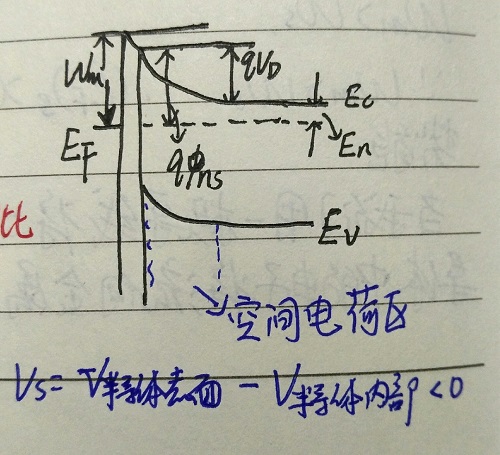 Wm
qVD
Ec
EF
En
qΦns
比
Ev
空间电荷区
Vs = V半导体表面 - V半导体内部 < 0